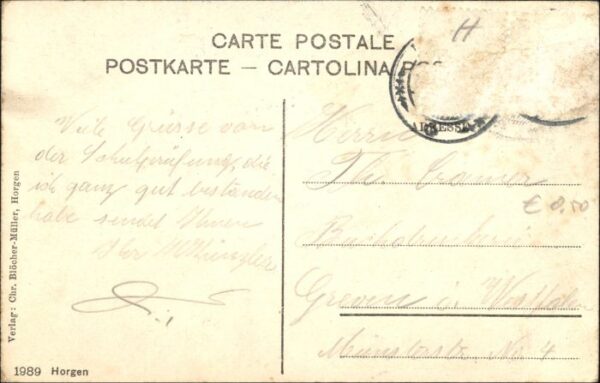 CARTE POSTALE
POSTKARTE — CARTOLINA
H
ADRESSE
Viele Grüsse von
der Schulprüfung, die
ich ganz gut bestanden
habe sendet Ihnen
Ihr
Herrn
Th. Cramer
€ 0,50
Greven i. Westfalen
Münsterstr. No. 4
Verlag: Chr. Blöcher-Müller, Horgen
1989 Horgen